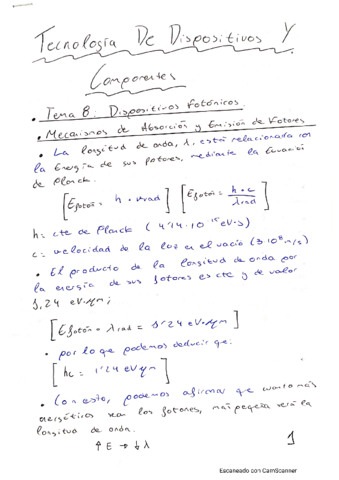 Tecnología De Dispositivos Y
Componentes
• Tema 8: Dispositivos Fotónicos.
• Mecanismos de Absorción y Emisión de Fotones
• La longitud de onda, λ, está relacionada con
la Energía de sus fotones, mediante la Ecuación
de Planck.
[Efotón = h · νrad] [Efotón = h · c / λrad]
h = cte de Planck (4'14·10^-15 eV·s)
c = velocidad de la luz en el vacío (3·10^8 m/s)
• El producto de la longitud de onda por
la energía de sus fotones es cte y de valor
1,24 eV·μm;
[Efotón · λrad = 1'24 eV·μm]
• por lo que podemos deducir que.
[hc = 1'24 eV μm]
• Con esto, podemos afirmar que cuanto más
energéticos sean los fotones, más pequeña será la
longitud de onda.
↑E → ↓λ
1
Escaneado con CamScanner